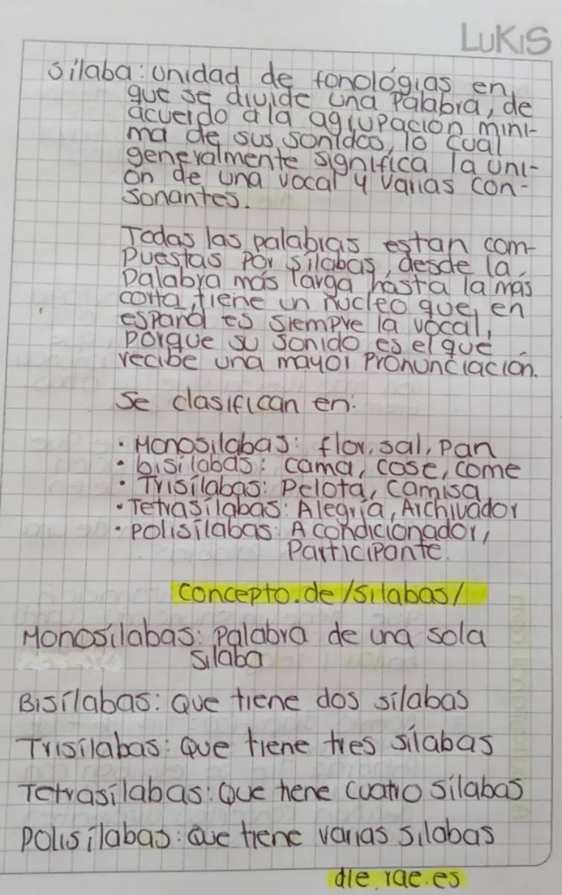 LUKIS
sílaba: unidad de fonológias en
que se divide una Palabra, de
acuerdo a la agrupacion mini-
ma de sus sonidos, lo cual
generalmente significa la uni-
on de una vocal y varias con-
sonantes.
Todas las palabras estan com-
puestas por sílabas, desde la
palabra más larga hasta la mas
corta, tiene un nucleo que, en
españd es siempre la vocal,
porque su sonido es el que
recibe una mayor pronunciación.
Se clasifican en:
• Monosilabas: flor, sal, pan
• bisílabas: cama, cose, come
• Trisílabas: Pelota, camisa
• Tetrasílabas: Alegría, Archivador
• polisílabas: Acondicionador,
Participante.
concepto.de/silabas/
Monosílabas: palabra de una sola
silaba
Bisílabas: que tiene dos sílabas
Trisílabas: que tiene tres sílabas
Tetrasílabas: que tiene cuatro sílabas
Polisílabas: que tiene varias silabas
dle.rae.es